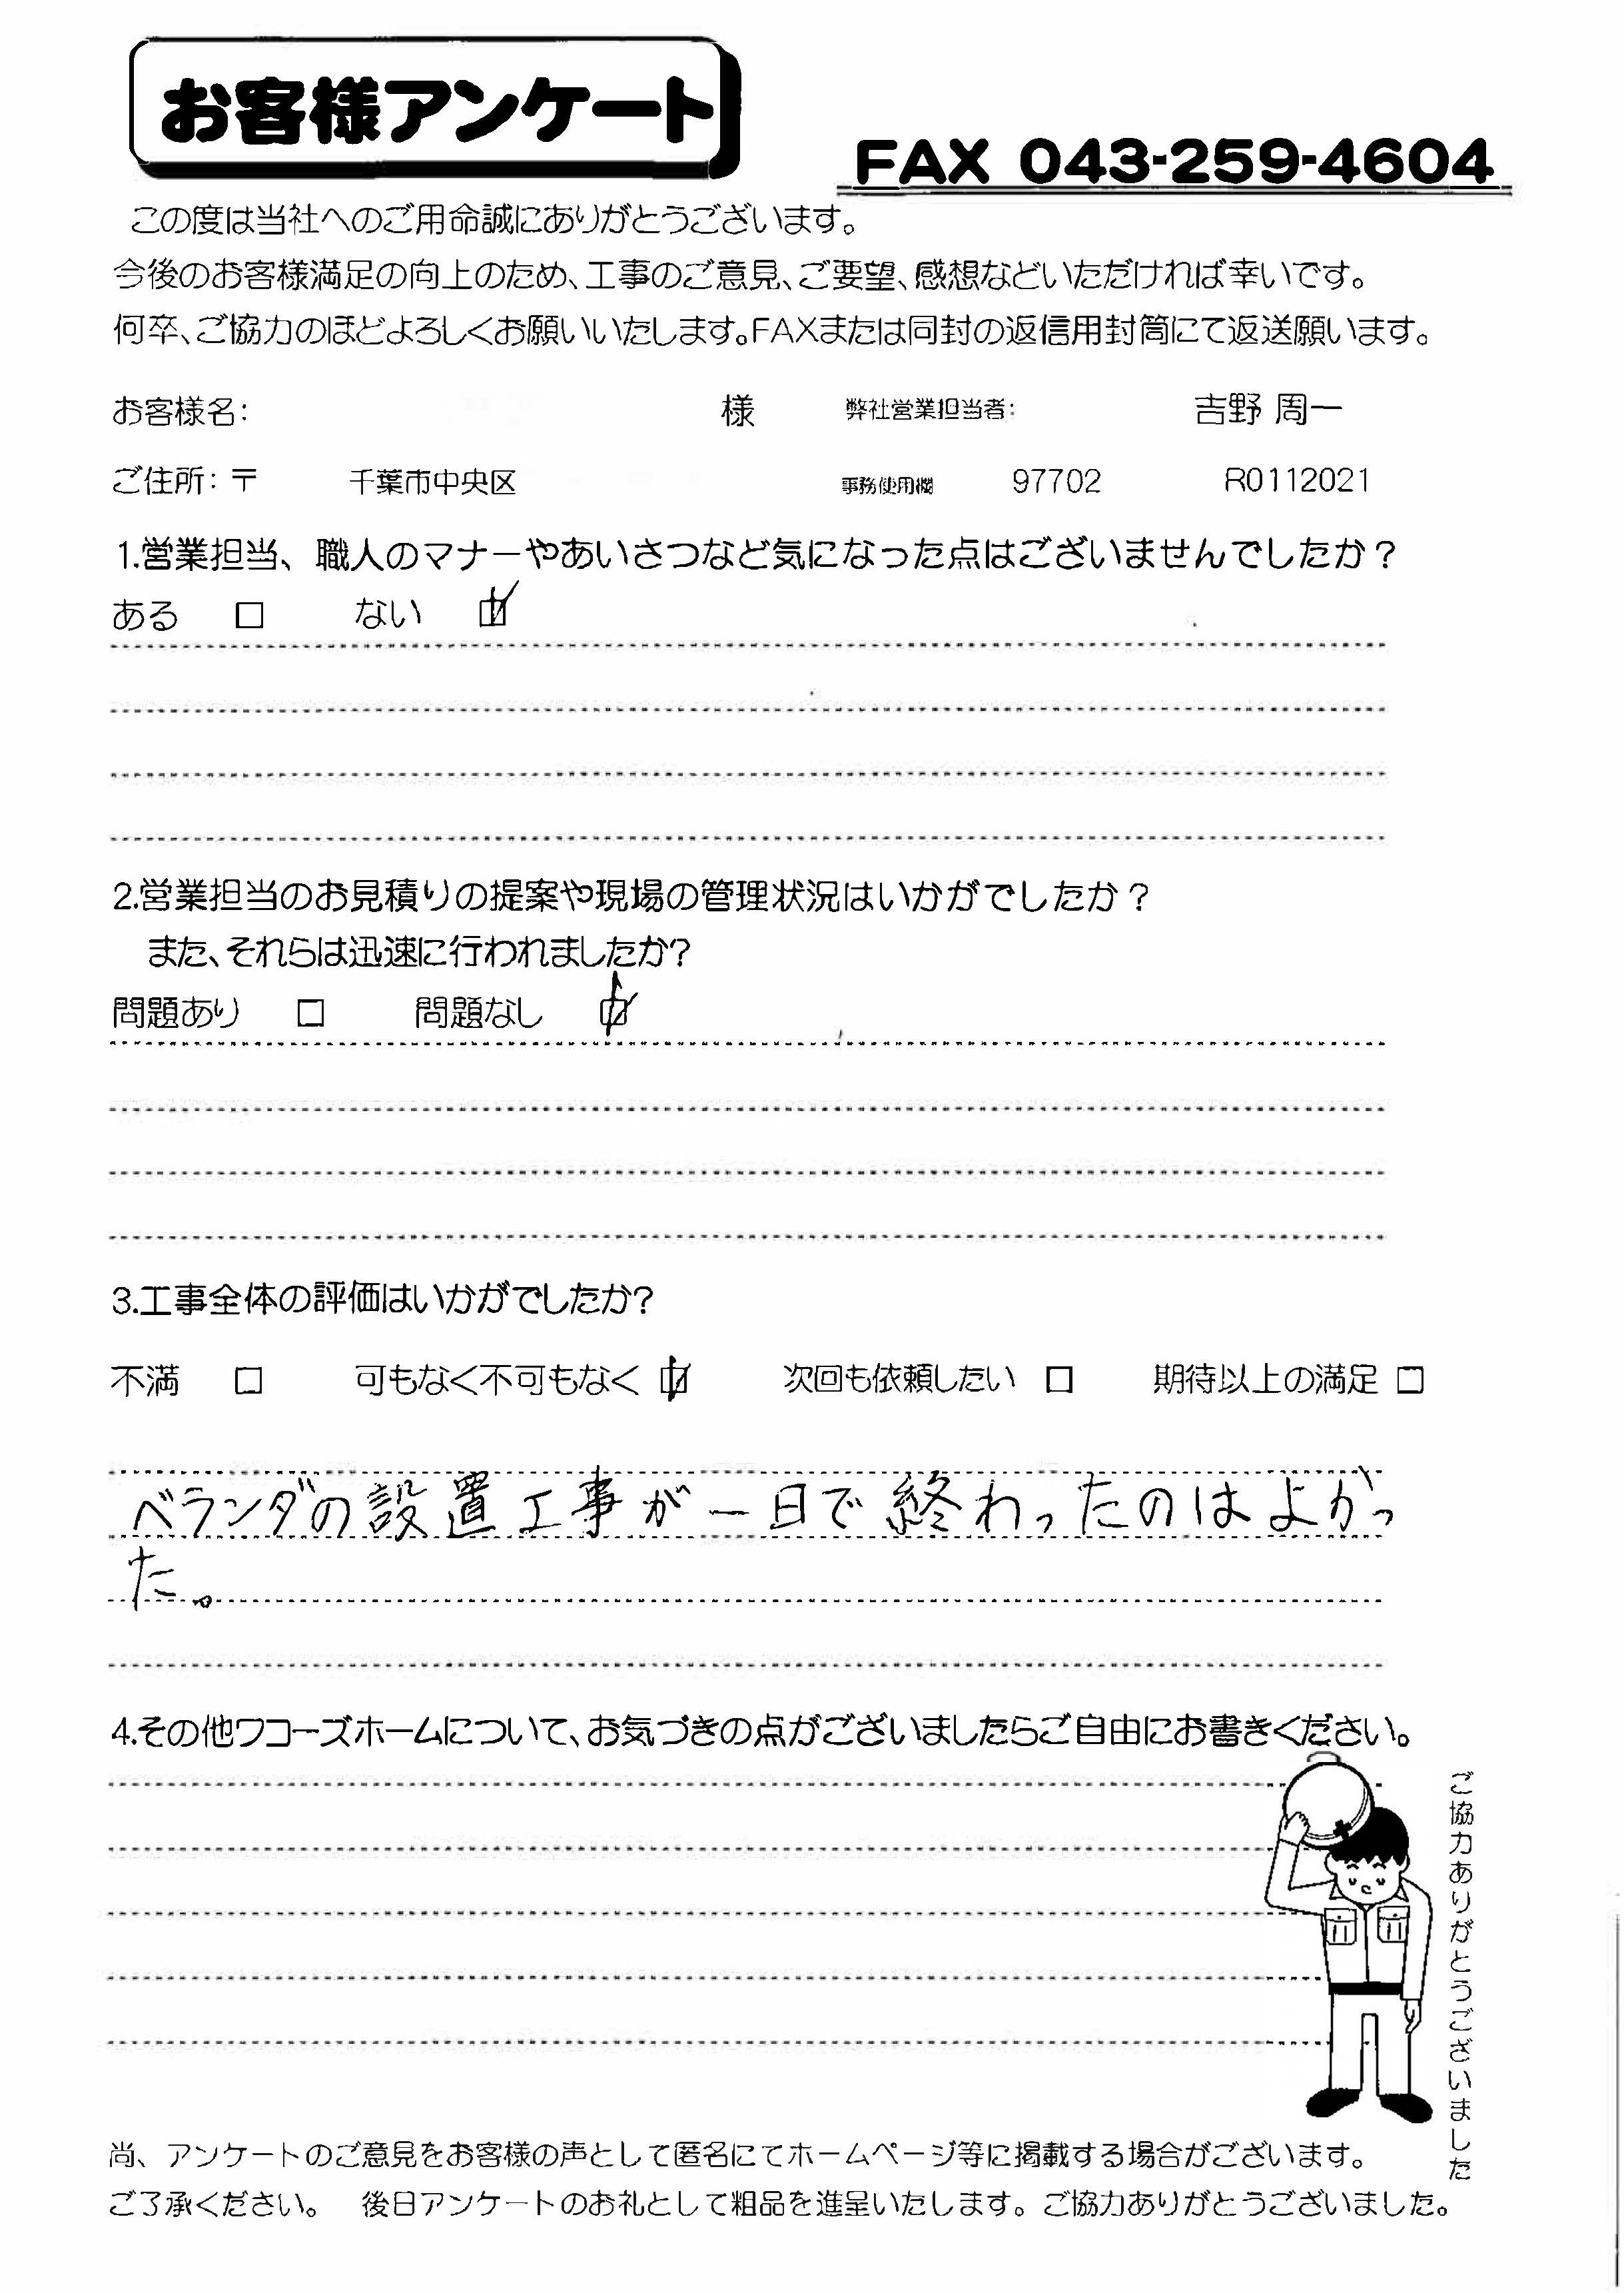 お客様アンケート
FAX 043-259-4604
この度は当社へのご用命誠にありがとうございます。
今後のお客様満足の向上のため、工事のご意見、ご要望、感想などいただければ幸いです。
何卒、ご協力のほどよろしくお願いいたします。FAXまたは同封の返信用封筒にて返送願います。
お客様名: 様 弊社営業担当者: 吉野 周一
ご住所: 〒 千葉市中央区 事務使用欄 97702 R0112021
1.営業担当、職人のマナーやあいさつなど気になった点はございませんでしたか？
ある □ ない ☑
2.営業担当のお見積りの提案や現場の管理状況はいかがでしたか？
また、それらは迅速に行われましたか?
問題あり □ 問題なし ☑
3.工事全体の評価はいかがでしたか?
不満 □ 可もなく不可もなく ☑ 次回も依頼したい □ 期待以上の満足 □
ベランダの設置工事が一日で終わったのはよかっ
た。
4.その他ワコーズホームについて、お気づきの点がございましたらご自由にお書きください。
ご協力ありがとうございました
尚、アンケートのご意見をお客様の声として匿名にてホームページ等に掲載する場合がございます。
ご了承ください。 後日アンケートのお礼として粗品を進呈いたします。ご協力ありがとうございました。